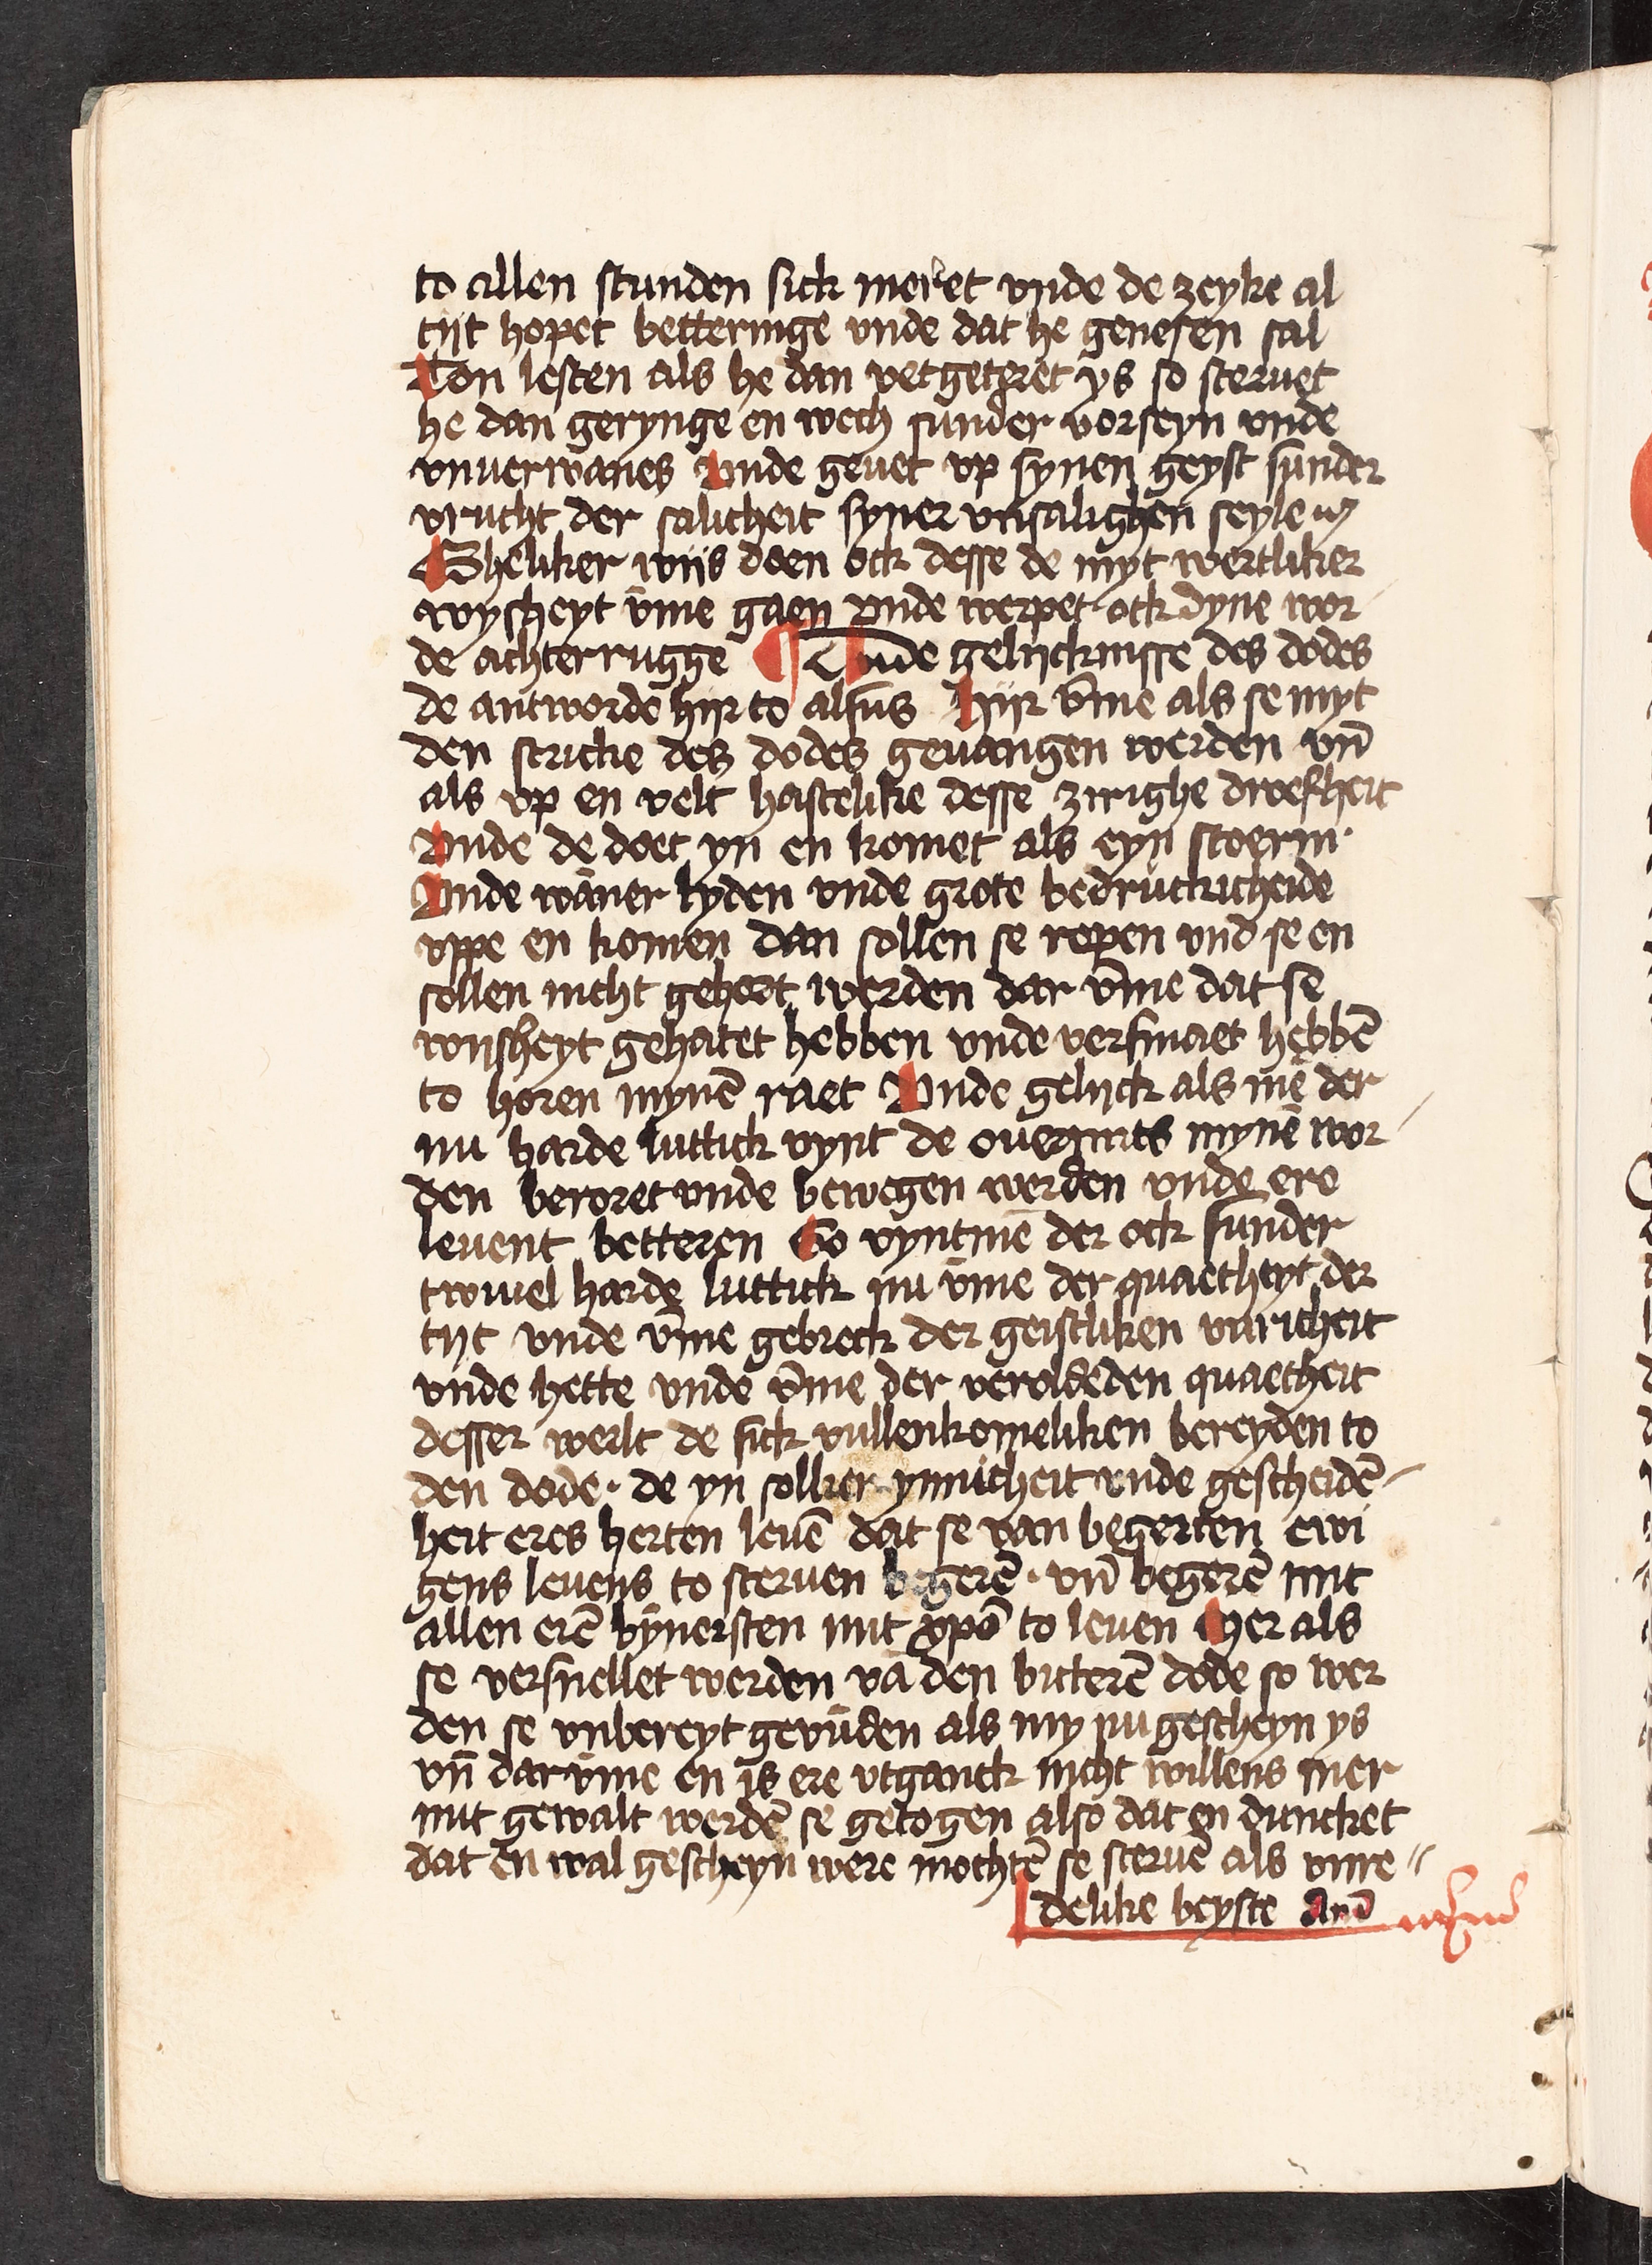 to allen stunden sick meret vnde de zeyke al
tijt hopet betteringe vnde dat he genesen sal
Ton lesten als he dan vetgeteret ys so steruet
he dan gerynge en wech sunder vorseyn vnde
vnuerwanes Vnde geuet vp synen geyst sunder
vrucht der salicheit syner vnsalighen seyle
Gheliker wijs doen ock desse de myt wertliker
wysheyt v̄me gaen vnde werpet ock dyne wor
de achterrugge ¶ Vnde gelijcknisse des dodes
de antworde hijr to alsus Hijr v̄me als se myt
den stricke des dodes geuangen werden vn̄
als vp en velt hastelike desse zirighe droefheit
Vnde de doet yn en komet als eyn stoerm·
Vnde wāner lyden vnde grote bedruckicheide
vppe en komen dan sollen se ropen vnd se en
sollen nicht gehort werden dar v̄me dat se
wijsheyt gehatet hebben vnde versmaet hebbē
to horen mynē raet Vnde gelijck als mē der
nu harde luttick vynt de ouermits mynē wor
den beroret vnde bewegen werden vnde ere
leuent betteren So vyntmē der ock sunder
twiuel harde luttick nu v̄me der quaetheyt der
tijt vnde v̄me gebreck der geistliken vuricheit
vnde hette vnde v̄me der veroldeden quaetheit
desser werlt de sick vullenkomeliken bereyden to
den dode· de yn sollicr ynnicheit vnde gescheidē
heit eres herten leuē dat se van begerten ewi
gens leuens to steruen begerē· vn̄ begerē mit
allen erē bȳnersten mit xp̄o to leuen Mer als
se versnellet werden vā den bitterē dode so wer
den se vnbereyt gevūden als my nu gescheyn ys
vn̄ darv̄me en is ere vtganck nicht willens mer
mit gewalt werdē se getogen also dat en duncket
dat en wal gescheyn were mochtē se steruē als vnre
delike beyste